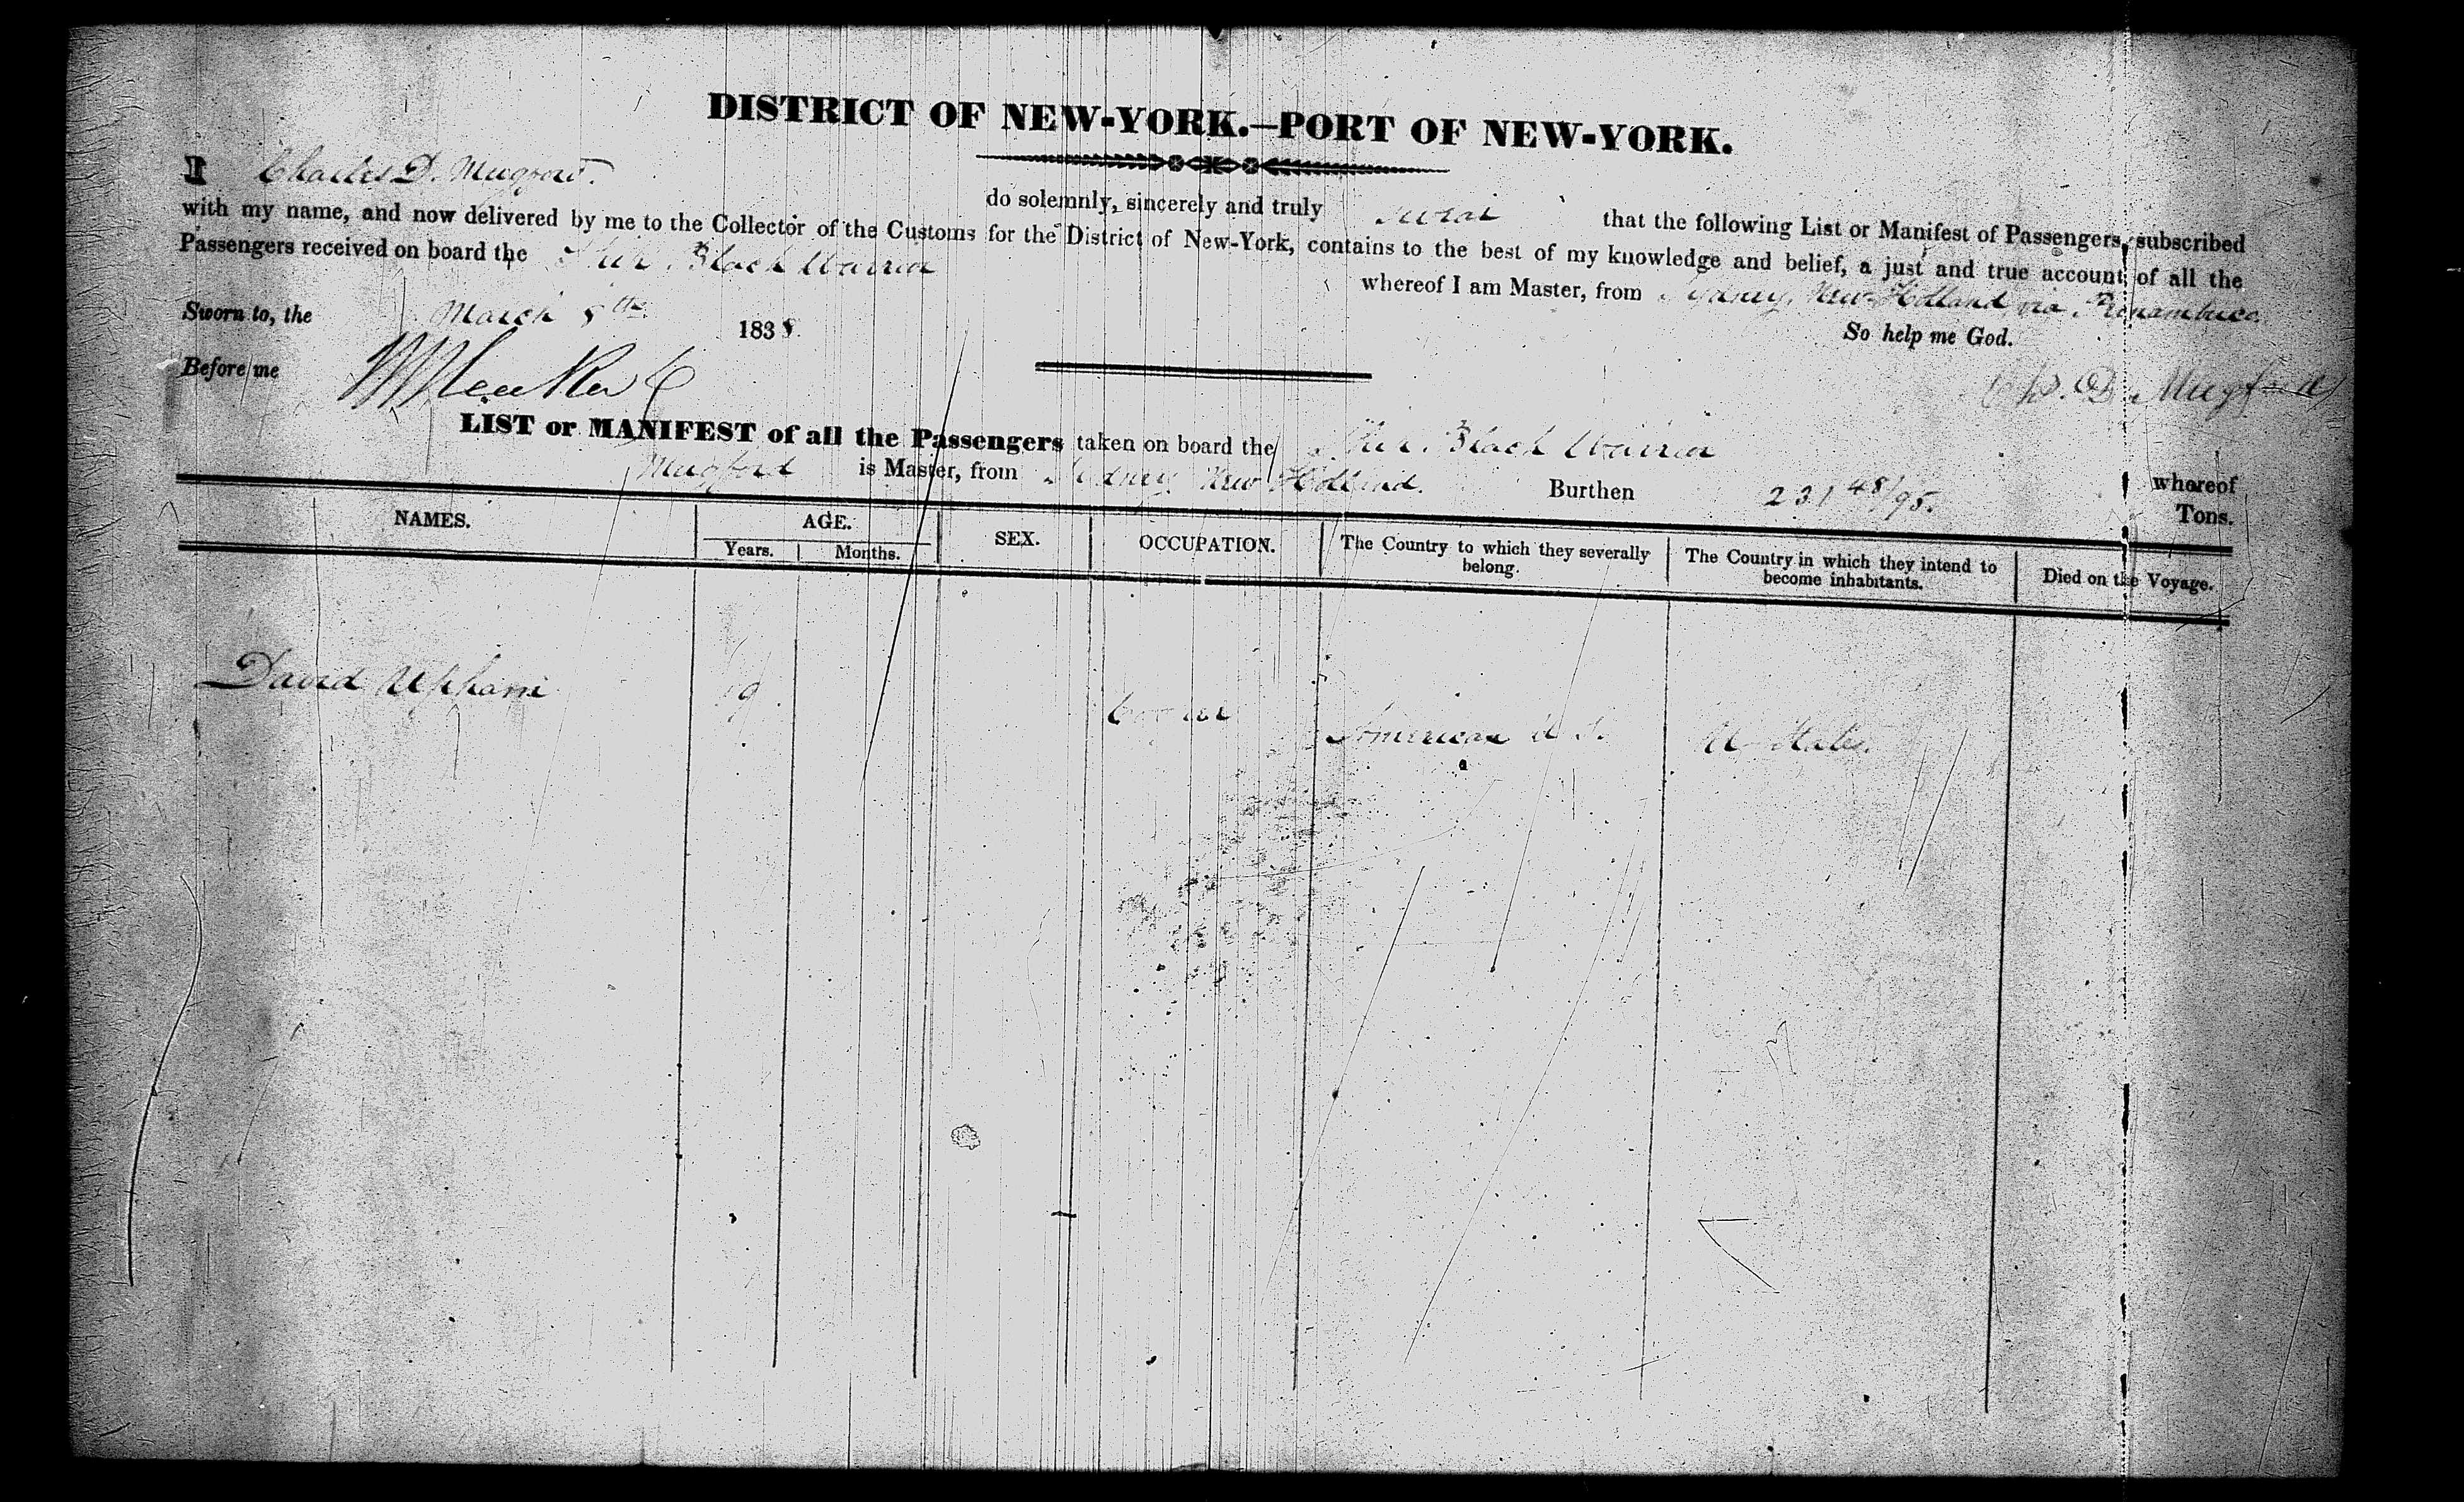 DISTRICT OF NEW-YORK.—PORT OF NEW-YORK.
I Charles D. Mugford. do solemnly, sincerely and truly swear that the following List or Manifest of Passengers, subscribed
with my name, and now delivered by me to the Collector of the Customs for the District of New-York, contains to the best of my knowledge and belief, a just and true account of all the
Passengers received on board the Black Warrior whereof I am Master, from Sydney, New Holland via Pernambuco.
Sworn to, the March 8th 1838. So help me God.
Before me
Chs. D. Mugford
LIST or MANIFEST of all the Passengers taken on board the Black Warrior whereof
Mugford is Master, from Sydney New Holland. Burthen 231 48/95. Tons.
NAMES. AGE. SEX. OCCUPATION. The Country to which they severally belong. The Country in which they intend to become inhabitants. Died on the Voyage.
Years. Months.
David Upham 19. American U.S. U States.